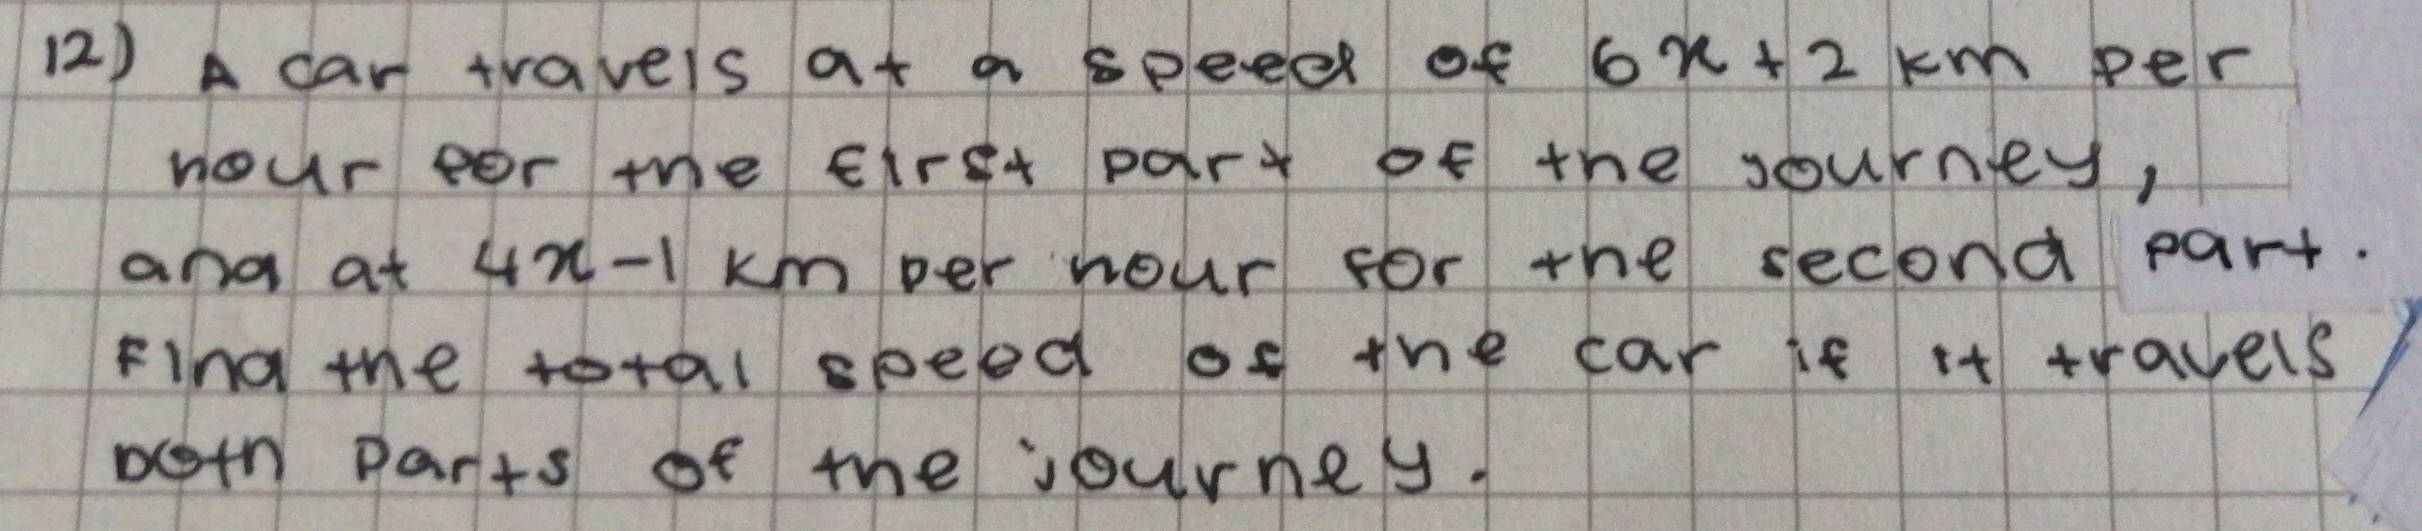 12) A car travels at a speed of 6x+2 km per
hour for the first part of the journey,
and at 4x-1 km per hour for the second part.
Find the total speed of the car if it travels
both parts of the journey.